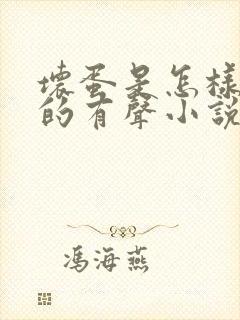 壞蛋是怎樣
的有聲小說
馮海燕